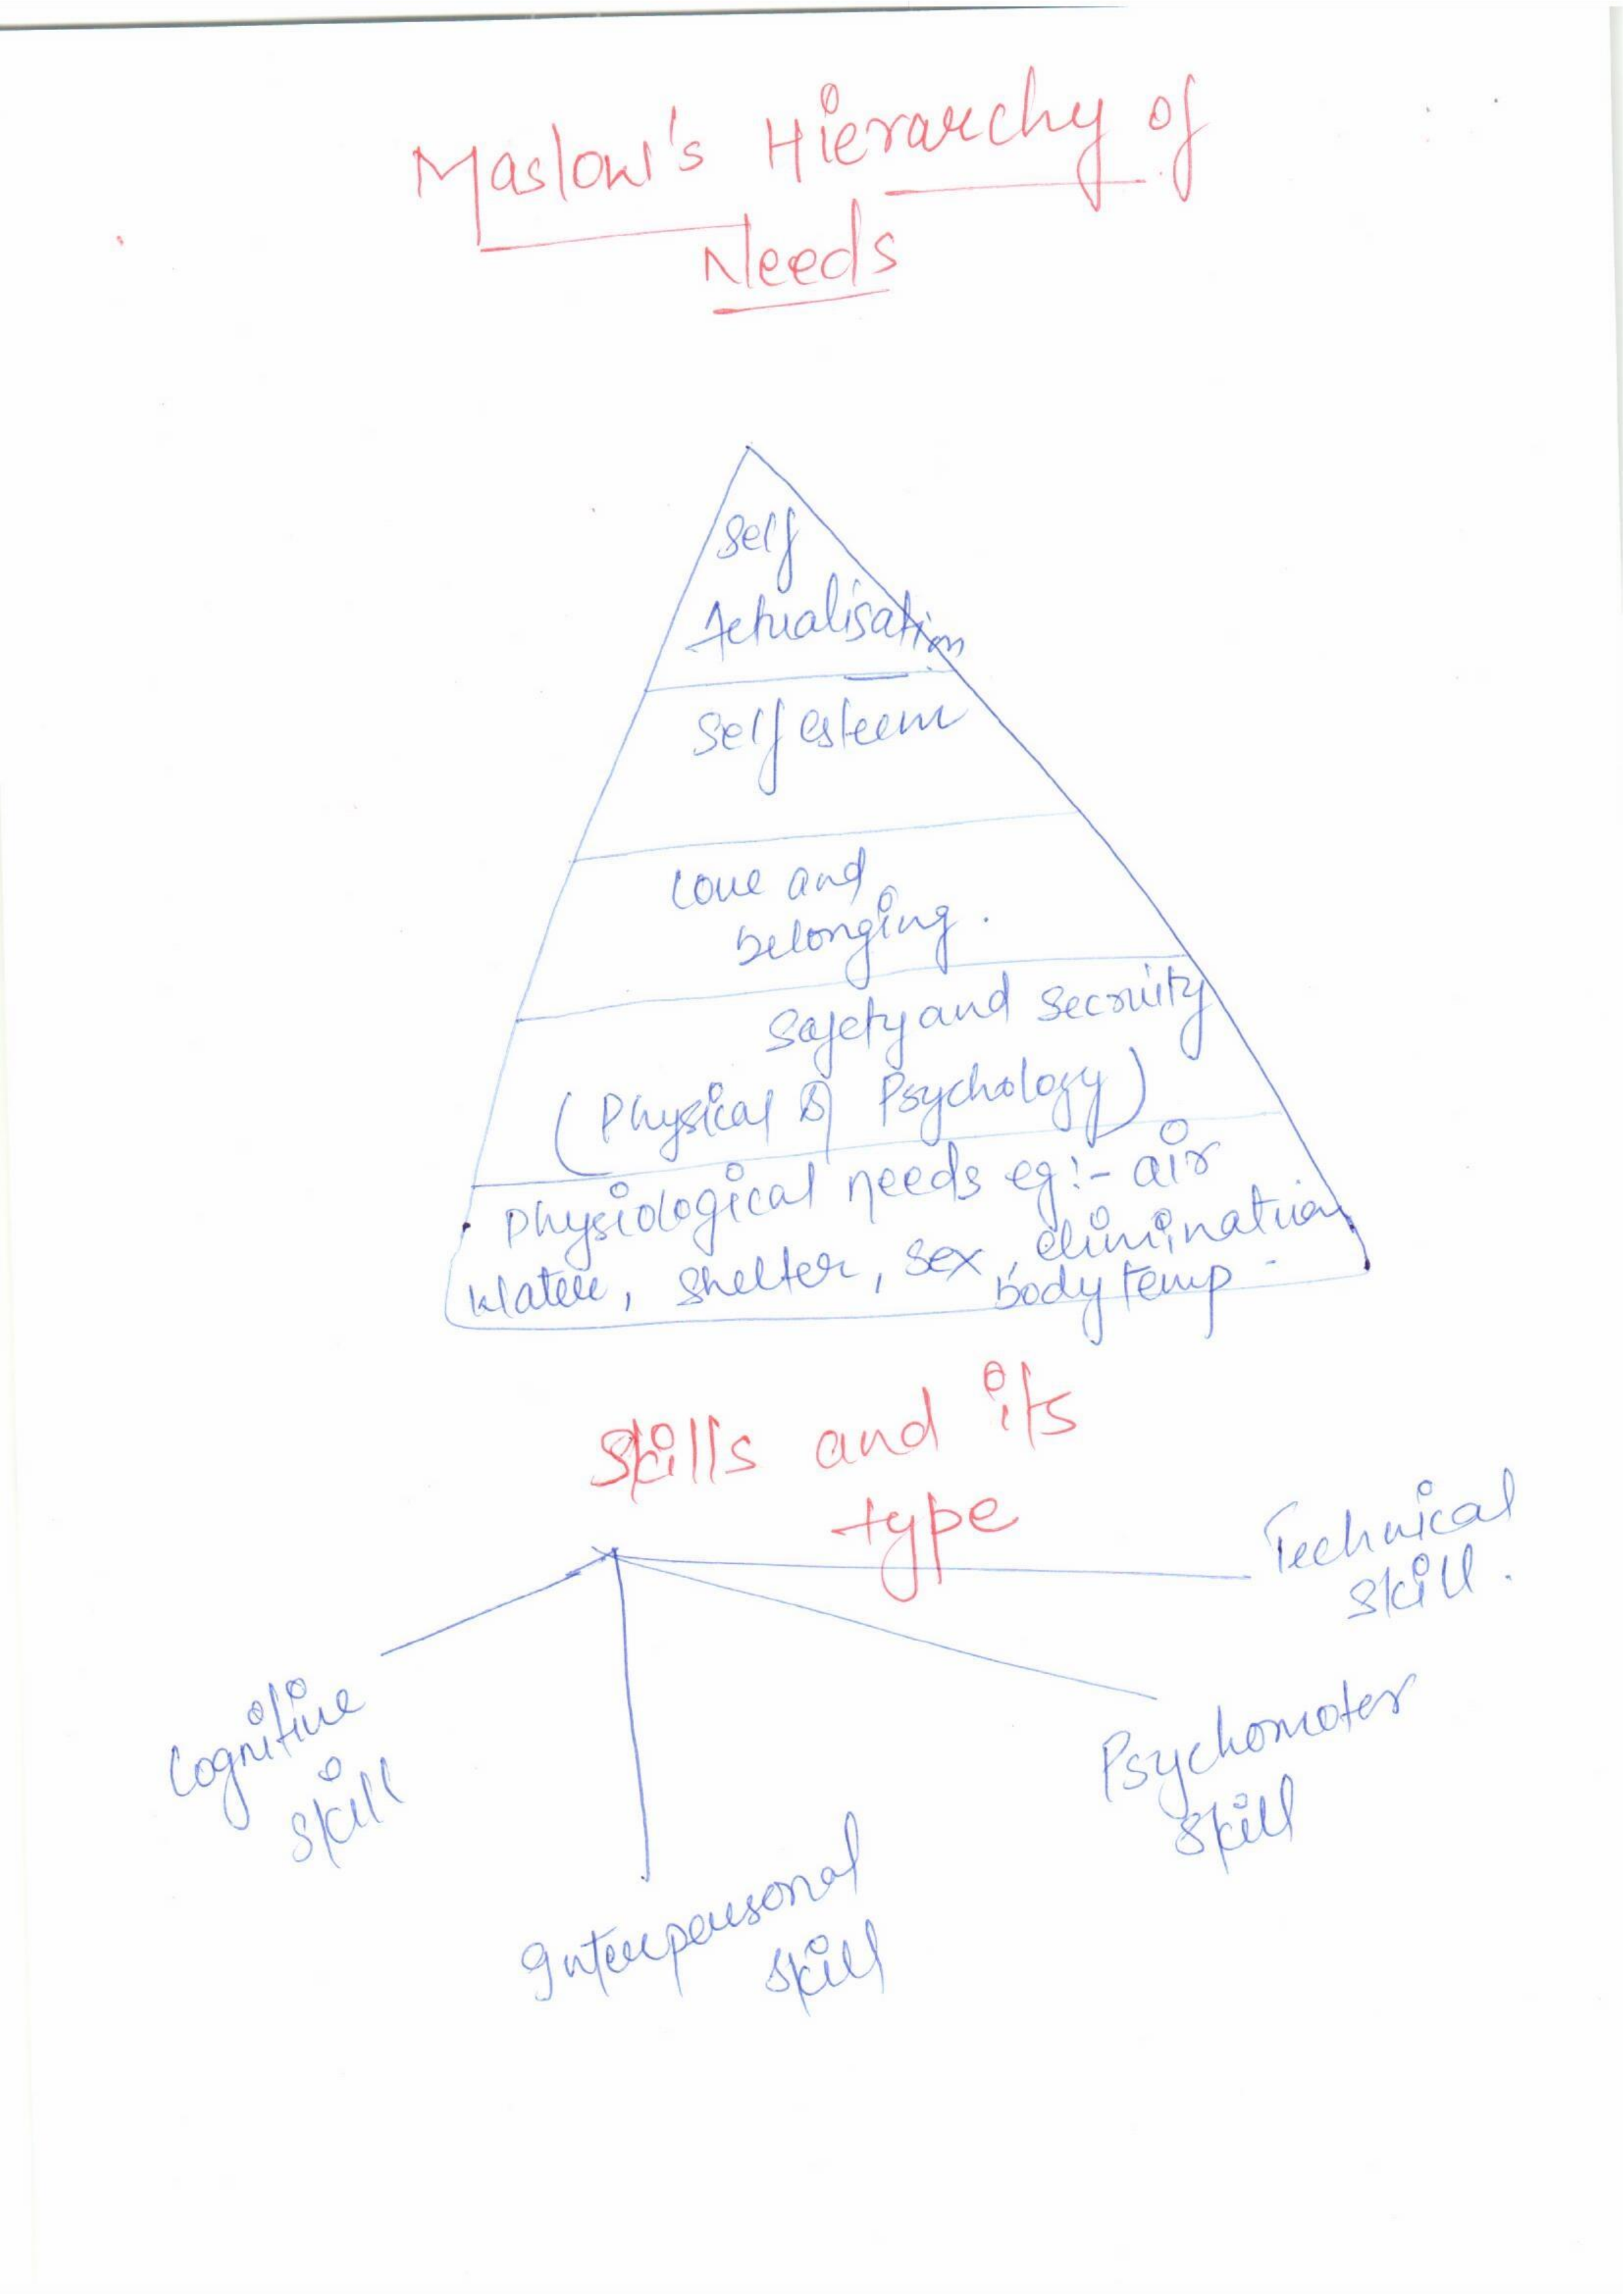 Maslow's Hierarchy of
Needs
Self
Actualisation
Self esteem
Love and
belonging.
Safety and Secruity
(Physical & Psychology)
Physiological needs eg:- air
Water, Shelter, Sex, elimination
body temp
Skills and its
type
Technical
Skill.
Cognitive
Skill
Psychomoter
Skill
Interpersonal
Skill